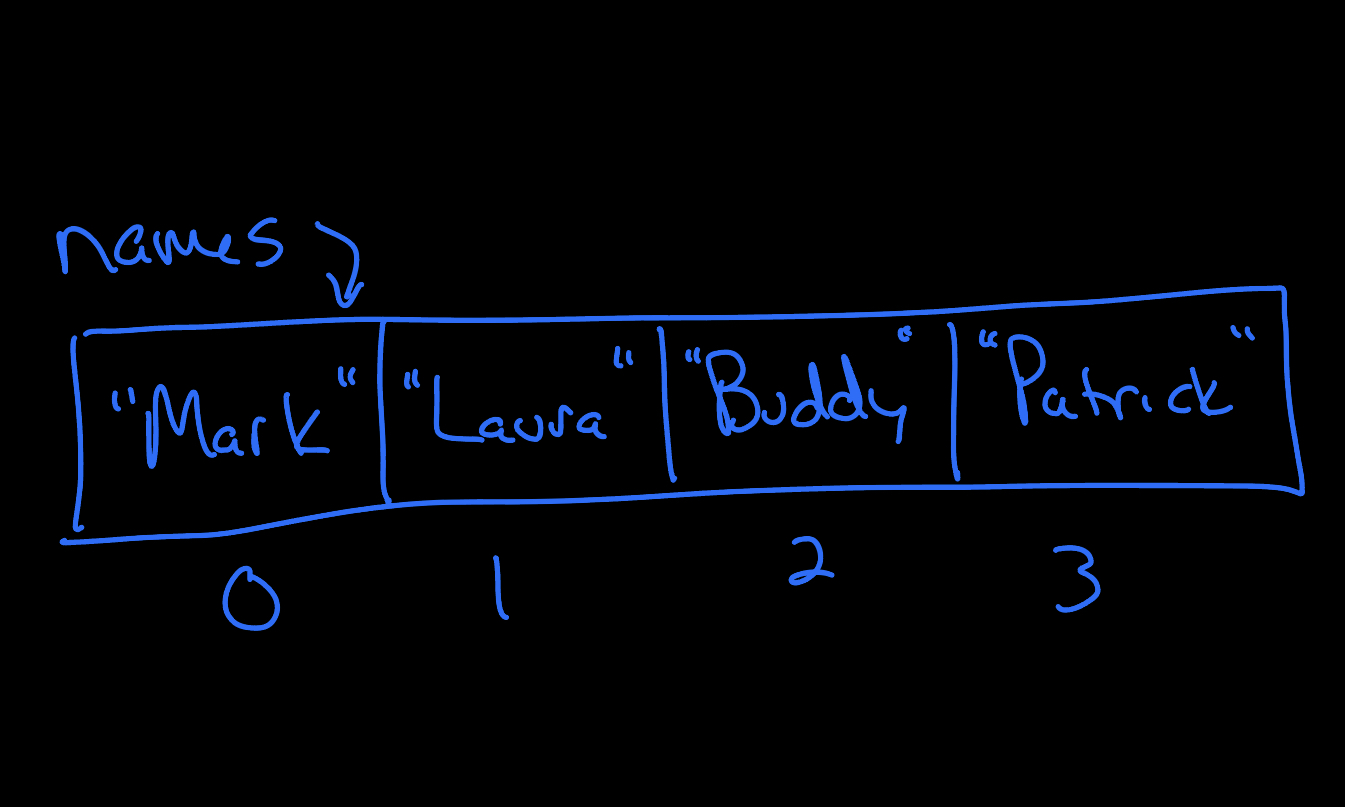 names
"Mark" "Laura" "Buddy" "Patrick"
0 1 2 3